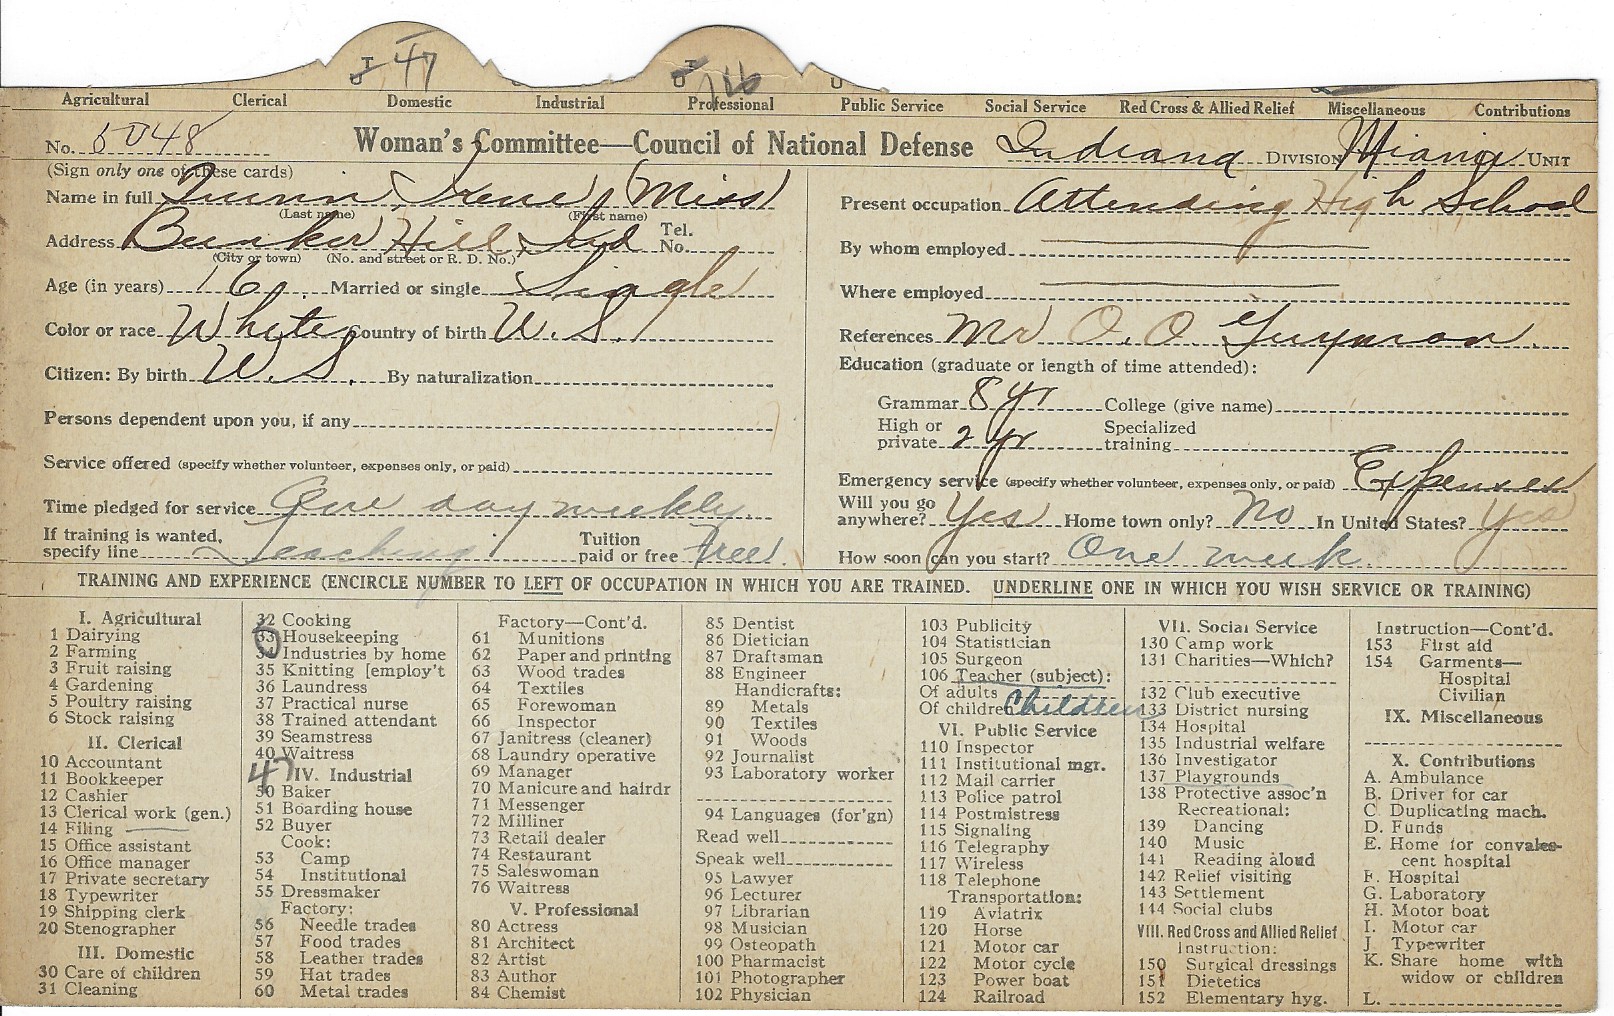 47 116
Agricultural Clerical Domestic Industrial Professional Public Service Social Service Red Cross & Allied Relief Miscellaneous Contributions
No. 5048 Woman's Committee—Council of National Defense Indiana DIVISION Miami UNIT
(Sign only one of these cards)
Name in full Quinn, Irene (Miss)
(Last name) (First name)
Address Bunker Hill, Ind Tel. No.
(City or town) (No. and street or R. D. No.)
Age (in years) 16 Married or single Single
Color or race White Country of birth U.S.
Citizen: By birth U.S. By naturalization
Persons dependent upon you, if any
Service offered (specify whether volunteer, expenses only, or paid)
Time pledged for service One day weekly
If training is wanted, specify line Teaching Tuition paid or free Free.
Present occupation Attending High School
By whom employed
Where employed
References Mr O. O.
Education (graduate or length of time attended):
Grammar 8 yr College (give name)
High or private 2 yr Specialized training
Emergency service (specify whether volunteer, expenses only, or paid) Expenses
Will you go anywhere? Yes Home town only? No In United States? Yes
How soon can you start? One week.
TRAINING AND EXPERIENCE (ENCIRCLE NUMBER TO LEFT OF OCCUPATION IN WHICH YOU ARE TRAINED. UNDERLINE ONE IN WHICH YOU WISH SERVICE OR TRAINING)
I. Agricultural
1 Dairying
2 Farming
3 Fruit raising
4 Gardening
5 Poultry raising
6 Stock raising
II. Clerical
10 Accountant
11 Bookkeeper
12 Cashier
13 Clerical work (gen.)
14 Filing
15 Office assistant
16 Office manager
17 Private secretary
18 Typewriter
19 Shipping clerk
20 Stenographer
III. Domestic
30 Care of children
31 Cleaning
32 Cooking
33 Housekeeping
34 Industries by home
35 Knitting [employ't
36 Laundress
37 Practical nurse
38 Trained attendant
39 Seamstress
40 Waitress
47
IV. Industrial
50 Baker
51 Boarding house
52 Buyer
Cook:
53 Camp
54 Institutional
55 Dressmaker
Factory:
56 Needle trades
57 Food trades
58 Leather trades
59 Hat trades
60 Metal trades
Factory—Cont'd.
61 Munitions
62 Paper and printing
63 Wood trades
64 Textiles
65 Forewoman
66 Inspector
67 Janitress (cleaner)
68 Laundry operative
69 Manager
70 Manicure and hairdr
71 Messenger
72 Milliner
73 Retail dealer
74 Restaurant
75 Saleswoman
76 Waitress
V. Professional
80 Actress
81 Architect
82 Artist
83 Author
84 Chemist
85 Dentist
86 Dietician
87 Draftsman
88 Engineer
Handicrafts:
89 Metals
90 Textiles
91 Woods
92 Journalist
93 Laboratory worker
94 Languages (for'gn)
Read well
Speak well
95 Lawyer
96 Lecturer
97 Librarian
98 Musician
99 Osteopath
100 Pharmacist
101 Photographer
102 Physician
103 Publicity
104 Statistician
105 Surgeon
106 Teacher (subject):
Of adults
Of children Children
VI. Public Service
110 Inspector
111 Institutional mgr.
112 Mail carrier
113 Police patrol
114 Postmistress
115 Signaling
116 Telegraphy
117 Wireless
118 Telephone
Transportation:
119 Aviatrix
120 Horse
121 Motor car
122 Motor cycle
123 Power boat
124 Railroad
VII. Social Service
130 Camp work
131 Charities—Which?
132 Club executive
133 District nursing
134 Hospital
135 Industrial welfare
136 Investigator
137 Playgrounds
138 Protective assoc'n
Recreational:
139 Dancing
140 Music
141 Reading aloud
142 Relief visiting
143 Settlement
144 Social clubs
VIII. Red Cross and Allied Relief
Instruction:
150 Surgical dressings
151 Dietetics
152 Elementary hyg.
Instruction—Cont'd.
153 First aid
154 Garments—
Hospital
Civilian
IX. Miscellaneous
X. Contributions
A. Ambulance
B. Driver for car
C. Duplicating mach.
D. Funds
E. Home for convales-
cent hospital
F. Hospital
G. Laboratory
H. Motor boat
I. Motor car
J. Typewriter
K. Share home with
widow or children
L.